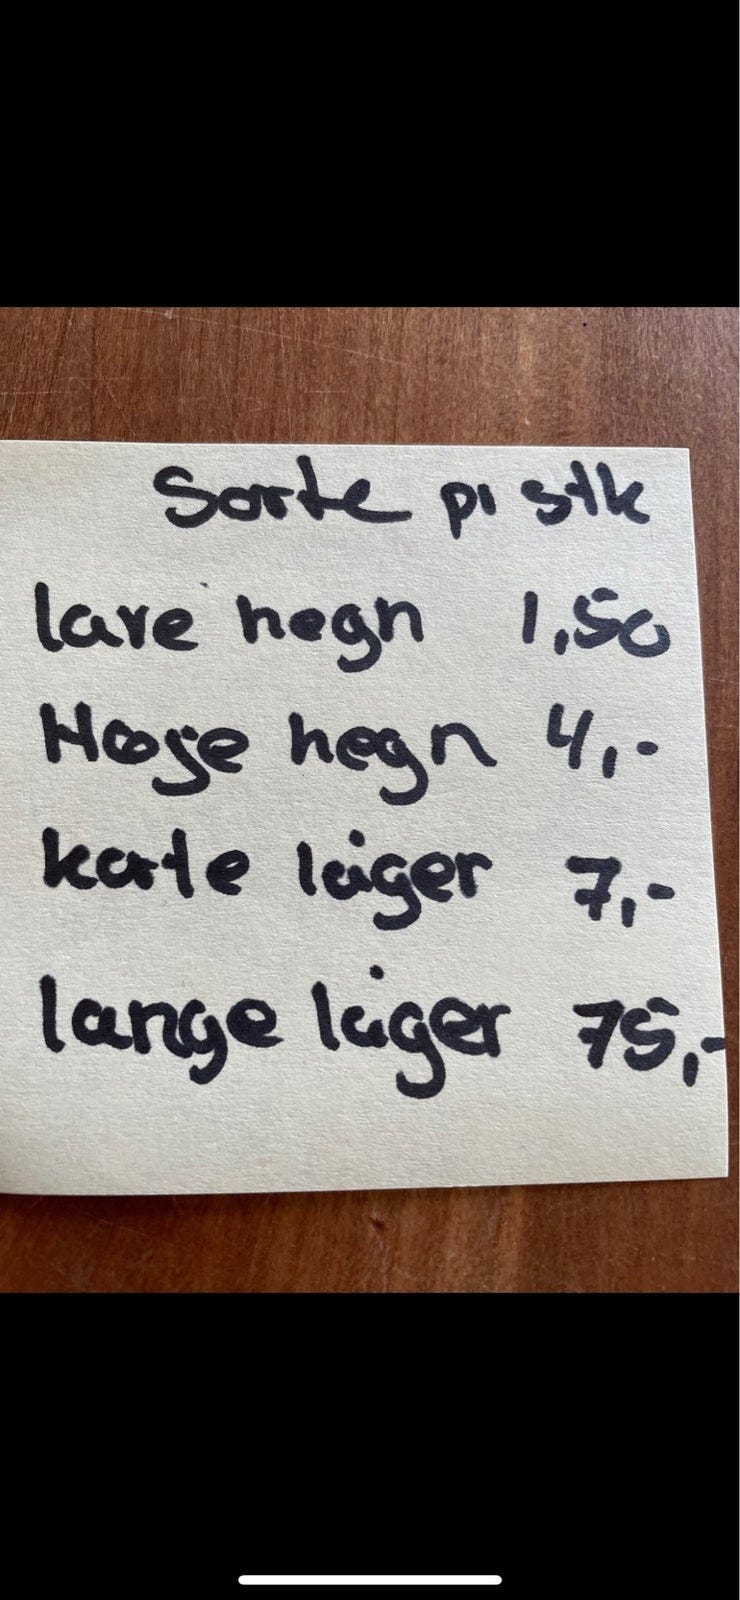 Sorte pr stk
lave hegn 1,50
Høje hegn 4,-
korte låger 7,-
lange låger 75,-